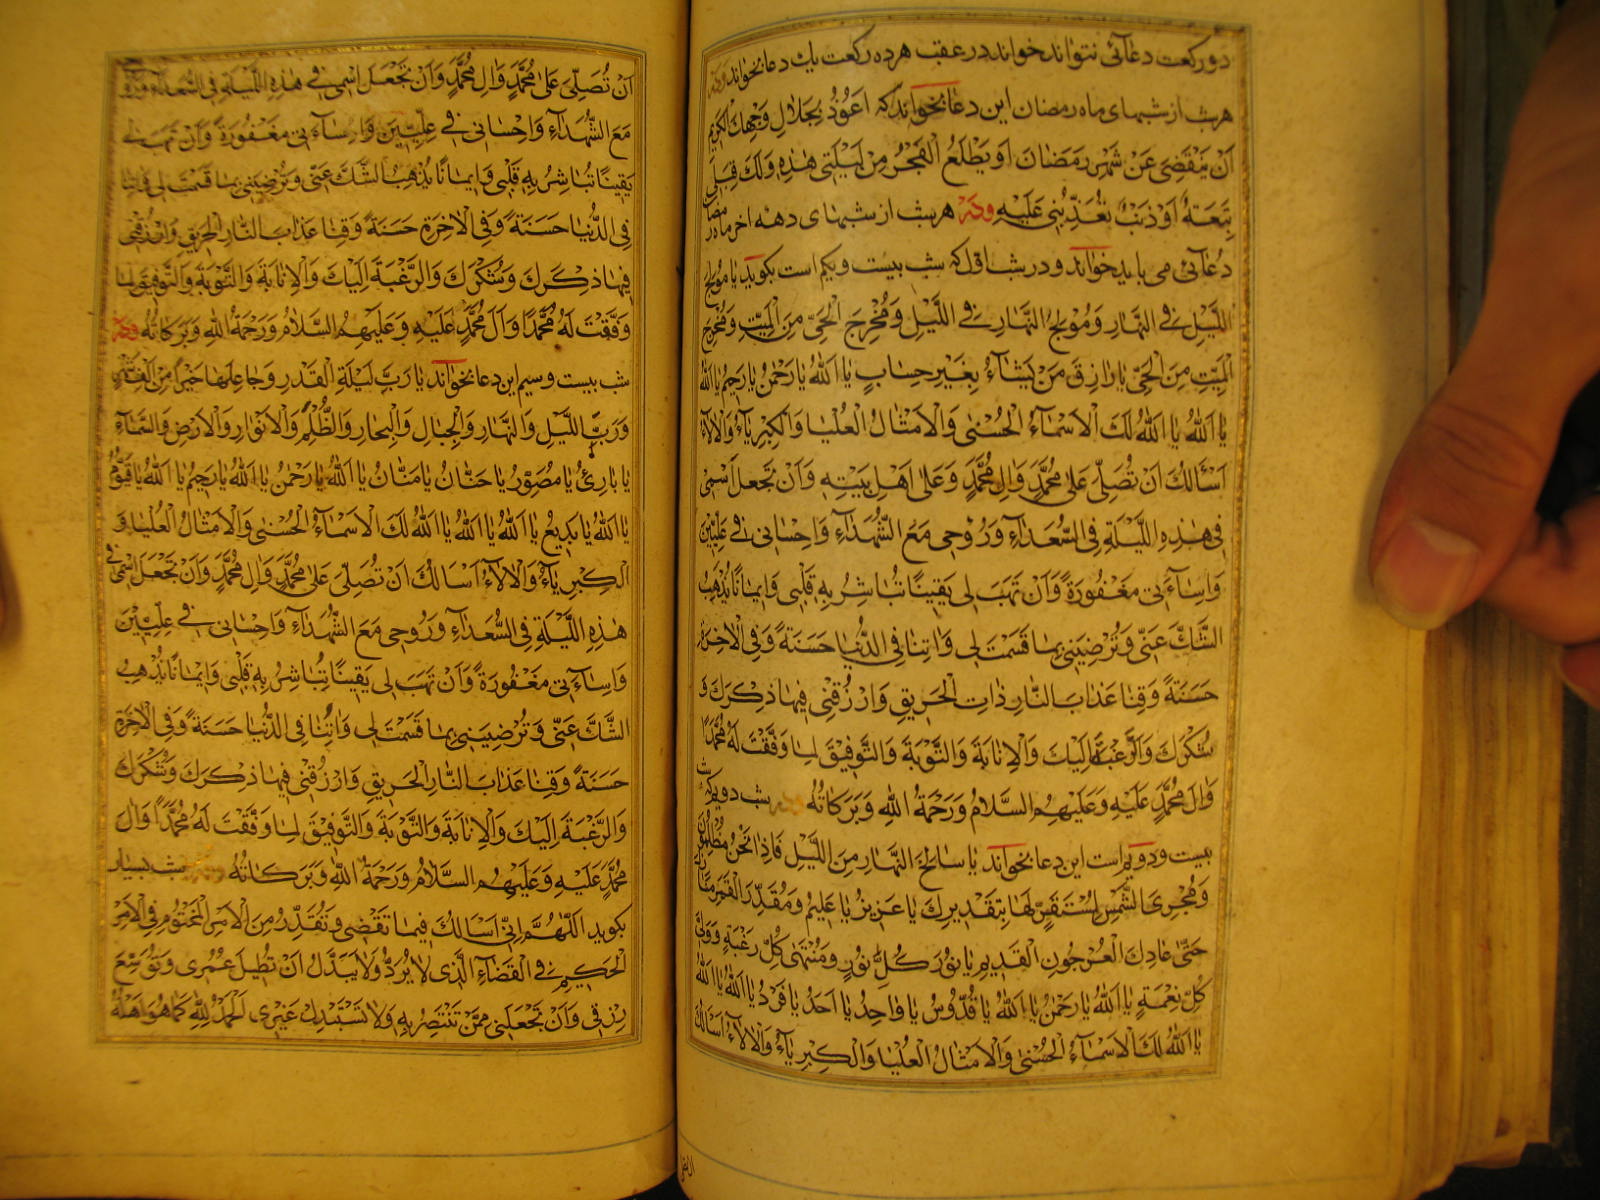 دو رکعت دعائی نتواند خواند در عقب هر ده رکعت یک دعا بخواند ودر
هر شب از شبهای ماه رمضان این دعا بخواند که اَعُوذُ بِجَلالِ وَجْهِكَ الْكَرِيم
اَنْ يَنْقَضِيَ عَنّي شَهْرُ رَمَضَانَ اَوْ يَطْلُعَ الْفَجْرُ مِنْ لَيْلَتي هٰذِهِ وَلَكَ قِبَلي
تَبِعَةٌ اَوْ ذَنْبٌ تُعَذِّبُني عَلَيْهِ ودر هر شب از شبهای دهه اخر ماه رمضان
دعائی می باید خواند و در شب اول که شب بیست و یکم است بگوید يا مُولِجَ
اللَّيْلِ فِي النَّهَارِ وَمُولِجَ النَّهَارِ فِي اللَّيْلِ وَمُخْرِجَ الْحَيِّ مِنَ الْمَيِّتِ وَمُخْرِجَ
الْمَيِّتِ مِنَ الْحَيِّ يا رَازِقَ مَنْ يَشَاءُ بِغَيْرِ حِسَابٍ يا اَللهُ يا رَحْمٰنُ يا رَحِيمُ يا اَللهُ
يا اَللهُ يا اَللهُ لَكَ الْاَسْمَاءُ الْحُسْنىٰ وَالْاَمْثَالُ الْعُلْيَا وَالْكِبْرِيَاءُ وَالْآلَاءُ
اَسْأَلُكَ اَنْ تُصَلِّيَ عَلىٰ مُحَمَّدٍ وَالِ مُحَمَّدٍ وَعَلىٰ اَهْلِ بَيْتِهِ وَاَنْ تَجْعَلَ اسْمِي
فِي هٰذِهِ اللَّيْلَةِ فِي السُّعَدَاءِ وَرُوحِي مَعَ الشُّهَدَاءِ وَاِحْسَانِي فِي عِلِّيِّينَ
وَاِسَاءَتِي مَغْفُورَةً وَاَنْ تَهَبَ لِي يَقِينًا تُبَاشِرُ بِهِ قَلْبِي وَاِيمَانًا يُذْهِبُ
الشَّكَّ عَنِّي وَتُرْضِيَنِي بِمَا قَسَمْتَ لِي وَاٰتِنَا فِي الدُّنْيَا حَسَنَةً وَفِي الْاٰخِرَةِ
حَسَنَةً وَقِنَا عَذَابَ النَّارِ ذَاتِ الْحَرِيقِ وَارْزُقْنِي فِيهَا ذِكْرَكَ وَ
شُكْرَكَ وَالرَّغْبَةَ اِلَيْكَ وَالْاِنَابَةَ وَالتَّوْبَةَ وَالتَّوْفِيقَ لِمَا وَفَّقْتَ لَهُ مُحَمَّدًا
وَالَ مُحَمَّدٍ عَلَيْهِ وَعَلَيْهِمُ السَّلَامُ وَرَحْمَةُ اللهِ وَبَرَكَاتُهُ ودر شب دویم که شب
بیست و دویم است این دعا بخواند يا سَالِخَ النَّهَارِ مِنَ اللَّيْلِ فَاِذَا نَحْنُ مُظْلِمُونَ
وَمُجْرِيَ الشَّمْسِ لِمُسْتَقَرٍّ لَهَا بِتَقْدِيرِكَ يا عَزِيزُ يا عَلِيمُ وَمُقَدِّرَ الْقَمَرِ مَنَازِلَ
حَتّىٰ عَادَ كَالْعُرْجُونِ الْقَدِيمِ يا نُورَ كُلِّ نُورٍ وَمُنْتَهىٰ كُلِّ رَغْبَةٍ وَوَلِيَّ
كُلِّ نِعْمَةٍ يا اَللهُ يا رَحْمٰنُ يا اَللهُ يا قُدُّوسُ يا وَاحِدُ يا اَحَدُ يا فَرْدُ يا اَللهُ يا اَللهُ
يا اَللهُ لَكَ الْاَسْمَاءُ الْحُسْنىٰ وَالْاَمْثَالُ الْعُلْيَا وَالْكِبْرِيَاءُ وَالْآلَاءُ اَسْأَلُكَ
اَنْ تُصَلِّيَ عَلىٰ مُحَمَّدٍ وَالِ مُحَمَّدٍ وَاَنْ تَجْعَلَ اسْمِي فِي هٰذِهِ اللَّيْلَةِ فِي السُّعَدَاءِ وَرُوحِي
مَعَ الشُّهَدَاءِ وَاِحْسَانِي فِي عِلِّيِّينَ وَاِسَاءَتِي مَغْفُورَةً وَاَنْ تَهَبَ لِي
يَقِينًا تُبَاشِرُ بِهِ قَلْبِي وَاِيمَانًا يُذْهِبُ الشَّكَّ عَنِّي وَتُرْضِيَنِي بِمَا قَسَمْتَ لِي وَاٰتِنَا
فِي الدُّنْيَا حَسَنَةً وَفِي الْاٰخِرَةِ حَسَنَةً وَقِنَا عَذَابَ النَّارِ الْحَرِيقِ وَارْزُقْنِي
فِيهَا ذِكْرَكَ وَشُكْرَكَ وَالرَّغْبَةَ اِلَيْكَ وَالْاِنَابَةَ وَالتَّوْبَةَ وَالتَّوْفِيقَ لِمَا
وَفَّقْتَ لَهُ مُحَمَّدًا وَآلَ مُحَمَّدٍ عَلَيْهِ وَعَلَيْهِمُ السَّلَامُ وَرَحْمَةُ اللهِ وَبَرَكَاتُهُ ودر
شب بیست و سیم این دعا بخواند يا رَبَّ لَيْلَةِ الْقَدْرِ وَجَاعِلَهَا خَيْرًا مِنْ اَلْفِ شَهْرٍ
وَرَبَّ اللَّيْلِ وَالنَّهَارِ وَالْجِبَالِ وَالْبِحَارِ وَالظُّلَمِ وَالْاَنْوَارِ وَالْاَرْضِ وَالسَّمَاءِ
يا بَارِئُ يا مُصَوِّرُ يا حَنَّانُ يا مَنَّانُ يا اَللهُ يا رَحْمٰنُ يا اَللهُ يا رَحِيمُ يا اَللهُ يا قَيُّومُ
يا اَللهُ يا بَدِيعُ يا اَللهُ يا اَللهُ يا اَللهُ لَكَ الْاَسْمَاءُ الْحُسْنىٰ وَالْاَمْثَالُ الْعُلْيَا وَ
الْكِبْرِيَاءُ وَالْآلَاءُ اَسْأَلُكَ اَنْ تُصَلِّيَ عَلىٰ مُحَمَّدٍ وَالِ مُحَمَّدٍ وَاَنْ تَجْعَلَ اسْمِي فِي
هٰذِهِ اللَّيْلَةِ فِي السُّعَدَاءِ وَرُوحِي مَعَ الشُّهَدَاءِ وَاِحْسَانِي فِي عِلِّيِّينَ
وَاِسَاءَتِي مَغْفُورَةً وَاَنْ تَهَبَ لِي يَقِينًا تُبَاشِرُ بِهِ قَلْبِي وَاِيمَانًا يُذْهِبُ
الشَّكَّ عَنِّي وَتُرْضِيَنِي بِمَا قَسَمْتَ لِي وَاٰتِنَا فِي الدُّنْيَا حَسَنَةً وَفِي الْاٰخِرَةِ
حَسَنَةً وَقِنَا عَذَابَ النَّارِ الْحَرِيقِ وَارْزُقْنِي فِيهَا ذِكْرَكَ وَشُكْرَكَ
وَالرَّغْبَةَ اِلَيْكَ وَالْاِنَابَةَ وَالتَّوْبَةَ وَالتَّوْفِيقَ لِمَا وَفَّقْتَ لَهُ مُحَمَّدًا وَالَ
مُحَمَّدٍ عَلَيْهِ وَعَلَيْهِمُ السَّلَامُ وَرَحْمَةُ اللهِ وَبَرَكَاتُهُ شب بسیار
بگوید اَللّٰهُمَّ اِنِّي اَسْأَلُكَ فِيمَا تَقْضِي وَتُقَدِّرُ مِنَ الْاَمْرِ الْمَحْتُومِ فِي الْاَمْرِ
الْحَكِيمِ فِي الْقَضَاءِ الَّذِي لَا يُرَدُّ وَلَا يُبَدَّلُ اَنْ تُطِيلَ عُمُرِي وَتُوَسِّعَ
رِزْقِي وَاَنْ تَجْعَلَنِي مِمَّنْ تَنْتَصِرُ بِهِ وَلَا تَسْتَبْدِلْ غَيْرِي اَلْحَمْدُ لِلّٰهِ كَمَا هُوَ اَهْلُهُ